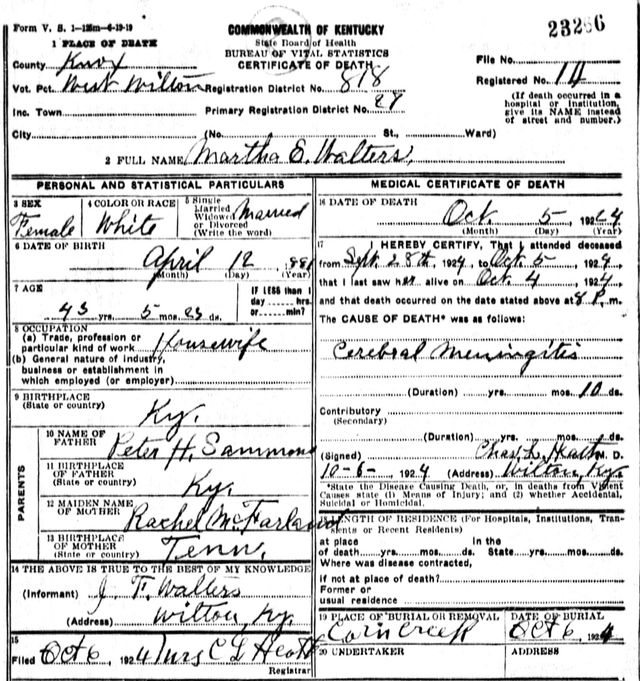 Form V. S. 1-125m-6-19-19
COMMONWEALTH OF KENTUCKY
23266
State Board of Health
BUREAU OF VITAL STATISTICS
CERTIFICATE OF DEATH
1 PLACE OF DEATH
County Knox
File No.
Vot. Pct. West Wilton Registration District No. 818
Registered No. 14
Inc. Town Primary Registration District No. 27
(If death occurred in a hospital or institution, give its NAME instead of street and number.)
City (No. St., Ward)
2 FULL NAME Martha E. Walters,
PERSONAL AND STATISTICAL PARTICULARS
3 SEX Female
4 COLOR OR RACE White
5 Single Married Widowed or Divorced (Write the word) Married
6 DATE OF BIRTH
April 12, 1881
(Month) (Day) (Year)
7 AGE
43 yrs. 5 mos. 23 ds.
IF LESS than 1 day hrs. or min?
8 OCCUPATION
(a) Trade, profession or particular kind of work Housewife
(b) General nature of industry, business or establishment in which employed (or employer)
9 BIRTHPLACE
(State or country) Ky.
PARENTS
10 NAME OF FATHER Peter H. Sammons
11 BIRTHPLACE OF FATHER
(State or country) Ky.
12 MAIDEN NAME OF MOTHER Rachel McFarland
13 BIRTHPLACE OF MOTHER
(State or country) Tenn,
14 THE ABOVE IS TRUE TO THE BEST OF MY KNOWLEDGE
(Informant) J. F. Walters
(Address) Wilton, Ky.
15
Filed Oct 6, 1924 Mrs C L Heath
Registrar
MEDICAL CERTIFICATE OF DEATH
16 DATE OF DEATH
Oct 5, 1924
(Month) (Day) (Year)
17 I HEREBY CERTIFY, That I attended deceased
from Sept. 28th 1924, to Oct. 5, 1924
that I last saw her alive on Oct. 4, 1924
and that death occurred on the date stated above at 8 P. m.
The CAUSE OF DEATH* was as follows:
Cerebral Meningitis
(Duration) yrs. mos. 10 ds.
Contributory
(Secondary)
(Duration) yrs. mos. ds.
(Signed) Chas. L. Heath M. D.
10-6-, 1924 (Address) Wilton, Ky.
*State the Disease Causing Death, or, in deaths from Violent
Causes state (1) Means of Injury; and (2) whether Accidental,
Suicidal or Homicidal.
LENGTH OF RESIDENCE (For Hospitals, Institutions, Transients or Recent Residents)
at place of death yrs. mos. ds. In the State yrs. mos. ds.
Where was disease contracted,
if not at place of death?
Former or usual residence
19 PLACE OF BURIAL OR REMOVAL
Corn Creek
DATE OF BURIAL
Oct 6, 1924
20 UNDERTAKER
ADDRESS